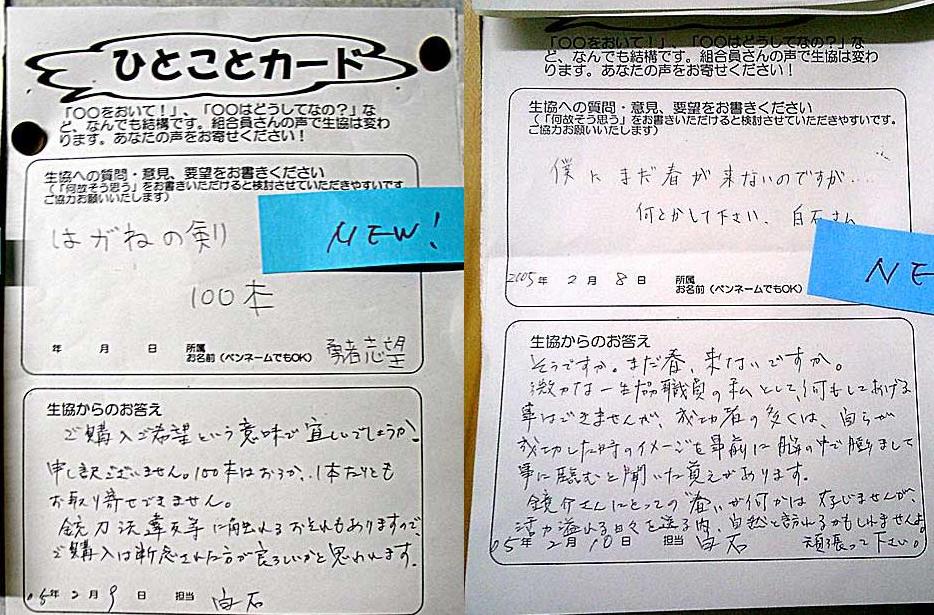 ひとことカード
「〇〇をおいて！」、「〇〇はどうしてなの？」な
ど、なんでも結構です。組合員さんの声で生協は変わ
ります。あなたの声をお寄せください！
生協への質問・意見、要望をお書きください
（「何故そう思う」をお書きいただけると検討させていただきやすいです。
ご協力お願いいたします）
はがねの剣
NEW!
100本
年 月 日 所属
お名前（ペンネームでもOK） 勇者志望
生協からのお答え
ご購入ご希望という意味で宜しいでしょうか。
申し訳ございません。100本はおろか、1本たりとも
お取り寄せできません。
銃刀法違反等に触れるおそれもありますので、
ご購入は断念された方が良ろしいかと思われます。
05年 2月 9日 担当 白石
「〇〇をおいて！」 「〇〇はどうしてなの？」な
ど、なんでも結構です。組合員さんの声で生協は変わ
ります。あなたの声をお寄せください！
生協への質問・意見、要望をお書きください
（「何故そう思う」をお書きいただけると検討させていただきやすいです。
ご協力お願いいたします）
僕にまだ春が来ないのですが…
何とかして下さい、白石さん
NE
2005年 2月 8日 所属
お名前（ペンネームでもOK）
生協からのお答え
そうですか。まだ春、来ないですか。
微力な一生協職員の私として、何もしてあげる
事はできませんが、成功者の多くは、自らが
成功した時のイメージを事前に脳の中で
事に臨むと聞いた覚えがあります。
鏡介さんにとっての"春"が何かは存じませんが、
活力溢れる日々を送る内、自然と訪れるかもしれませんよ。
05年 2月 10日 担当 白石 頑張って下さい。